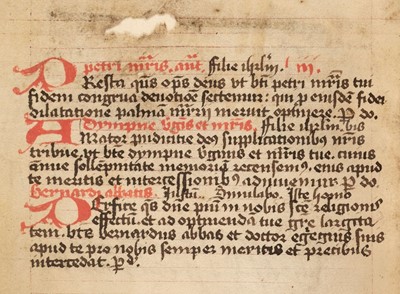 petri m̄ris. ant̄. ffilie ihrl̄m. l m̄.
PResta qs̄ op̄s deus vt bt̄i petri m̄ris tui
fidem congrua deuotiōe sectemur: qui p eiusdem fidei
dilatatione palmā m̄rii meruit optinere. P do.
Dympne v̄gis et m̄ris. ffilie ihrl̄m. bis
AMator pudicitie deus supplicationibꝫ nr̄is
tribue. vt bt̄e dympne v̄gīnis et m̄ris tue. cuius
annue sollēpnitatē memoriā recensemꝰ. eius apud
te meritis et intercessionibꝫ adiuuemur. P do.
bernardi abbatis. Iusti.. Simulabo. Iste homo
PErfice qs̄ dn̄e piū in nobis sc̄e religionis
effectū. et ad optinendā tue grē largita
tem. bt̄us bernardus abbas et doctor egregius suis
apud te pro nobis semper meritis et precibus
intercedat. P d.